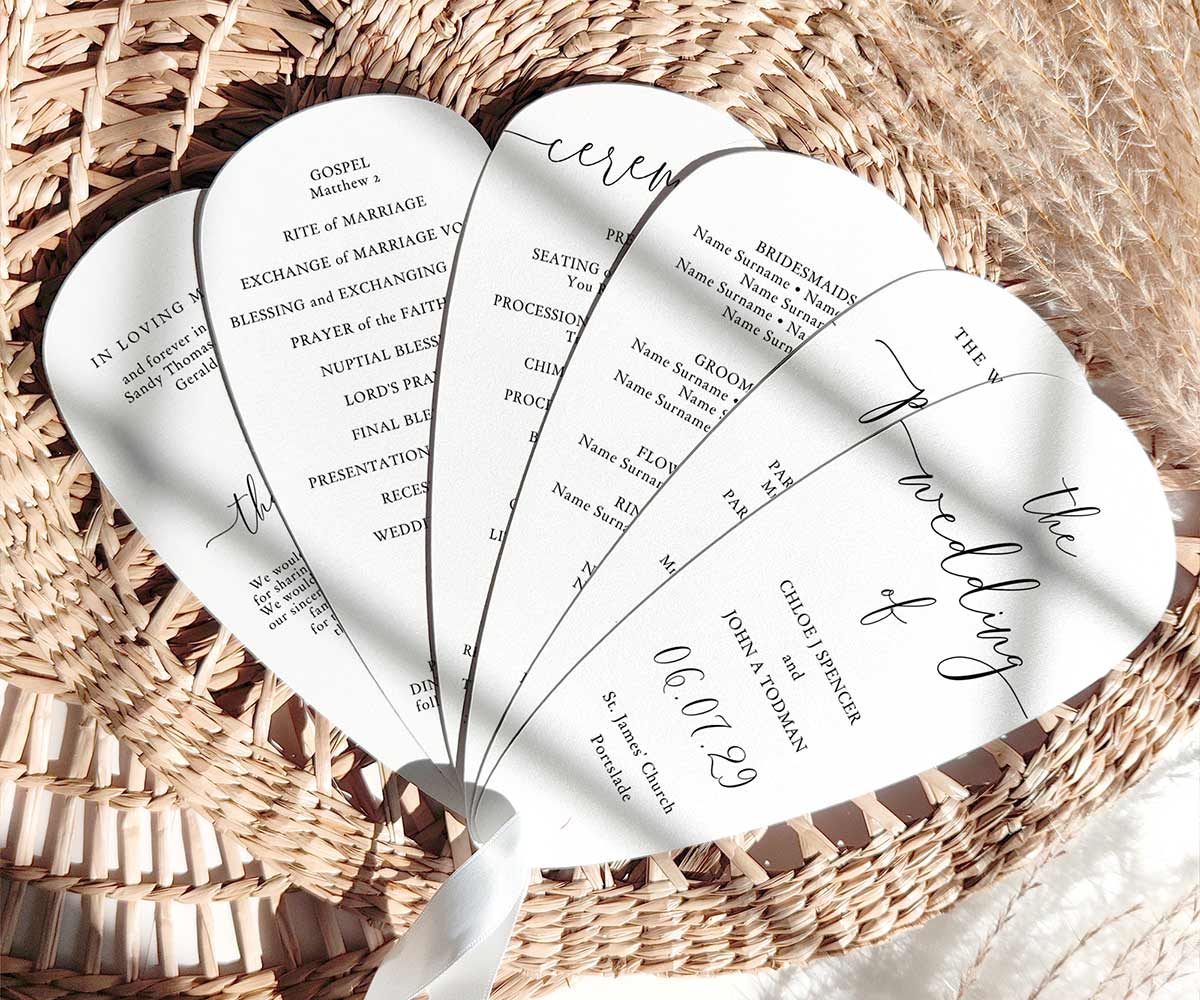 IN LOVING M
and forever in
Sandy Thomas
Gerald
th
We would
for sharin
We would
our sincer
fam
for t
th
GOSPEL
Matthew 2
RITE of MARRIAGE
EXCHANGE of MARRIAGE VO
BLESSING and EXCHANGING
PRAYER of the FAITH
NUPTIAL BLESS
LORD'S PRA
FINAL BLE
PRESENTATION
RECES
WEDD
DIN
foll
cerem
PRE
SEATING o
You
PROCESSION
T
CHIM
PROC
LI
BRIDESMAIDS
Name Surname • Name
Name Surname
Name Surname • Na
Name Surn
GROOM
Name Surname •
Name S
Name Surname
FLOW
Name Surnam
RIN
Name Surna
THE W
P
PAR
M
PAR
Mr
the
wedding
of
CHLOE J SPENCER
and
JOHN A TODMAN
06.07.29
St. James' Church
Portslade